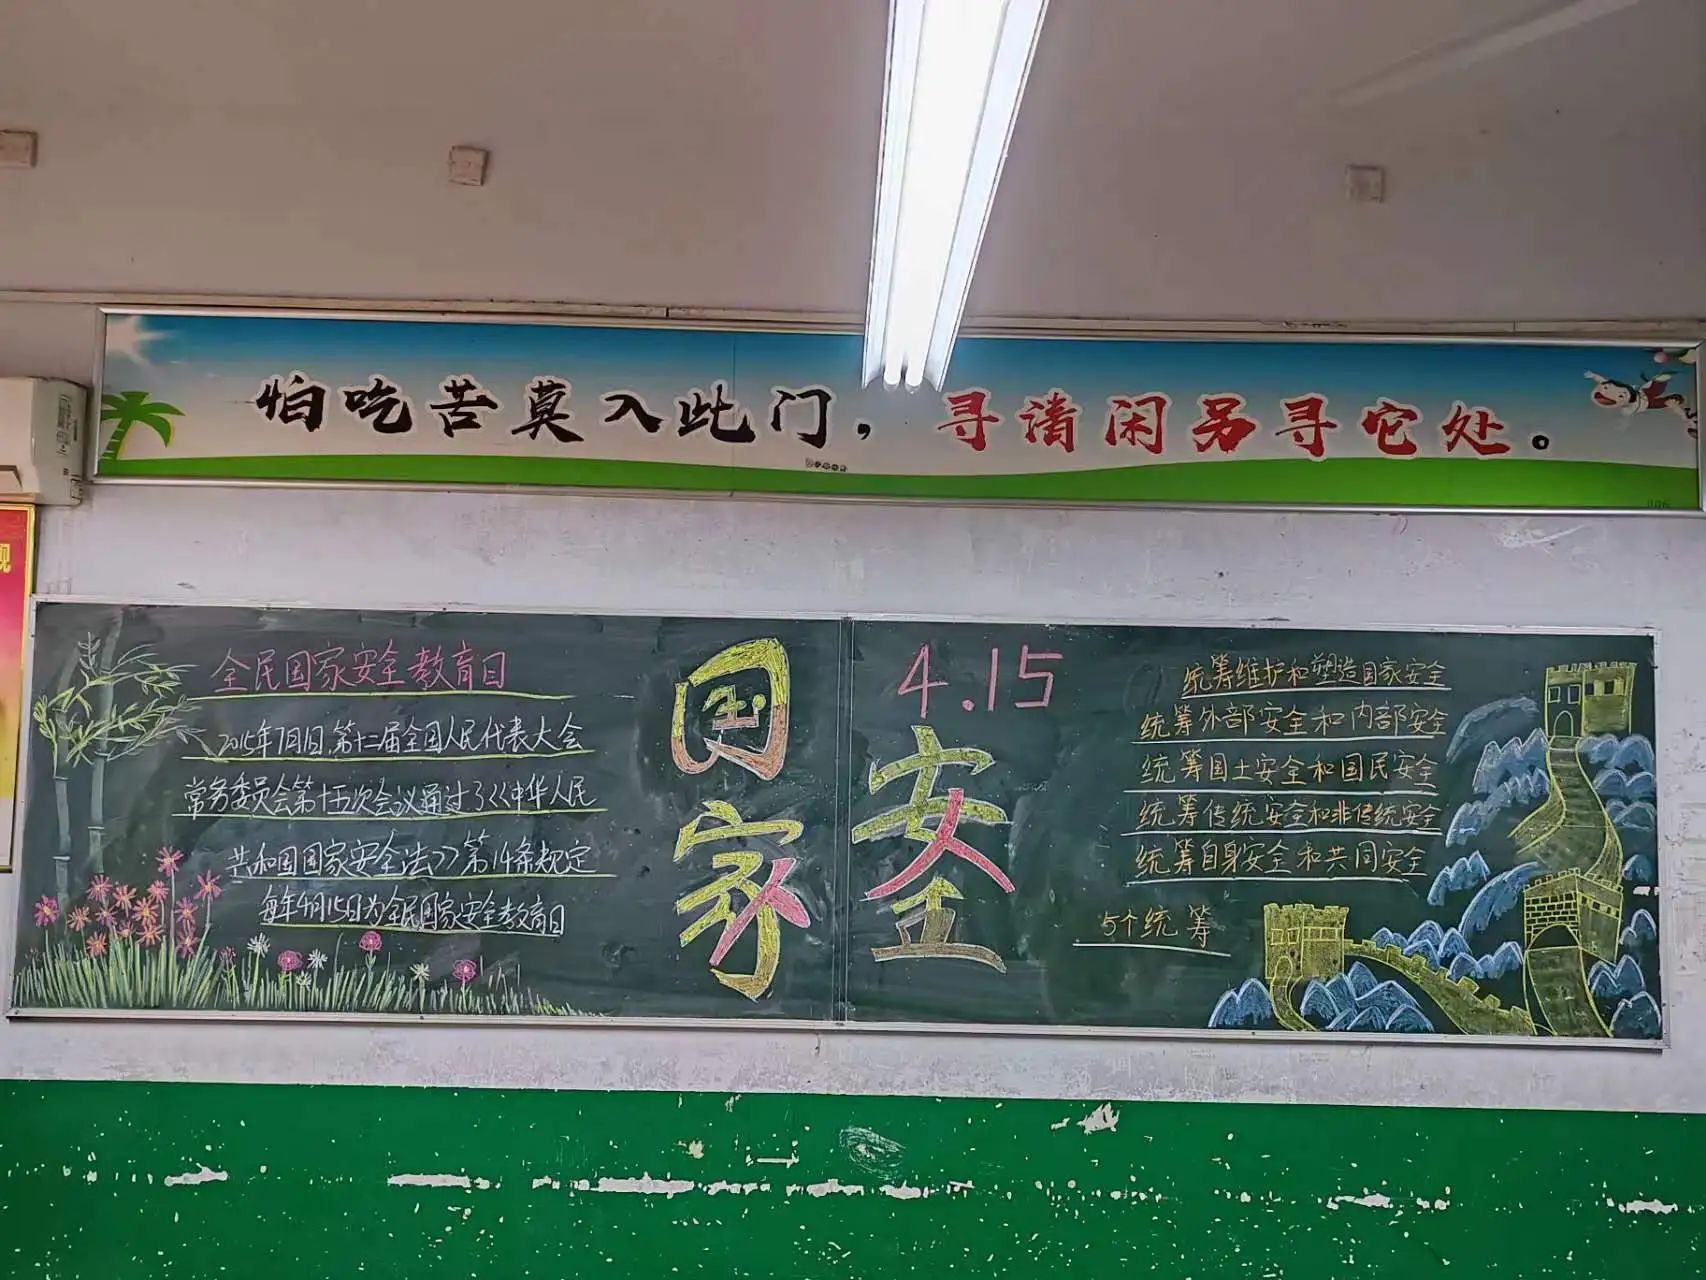 怕吃苦莫入此门，寻清闲另寻它处。
全民国家安全教育日
2015年7月1日,第十二届全国人民代表大会
常务委员会第十五次会议通过了<<中华人民
共和国国家安全法>>第14条规定
每年4月15日为全民国家安全教育日
国家
4.15
安全
统筹维护和塑造国家安全
统筹外部安全和内部安全
统筹国土安全和国民安全
统筹传统安全和非传统安全
统筹自身安全和共同安全
5个统筹
观